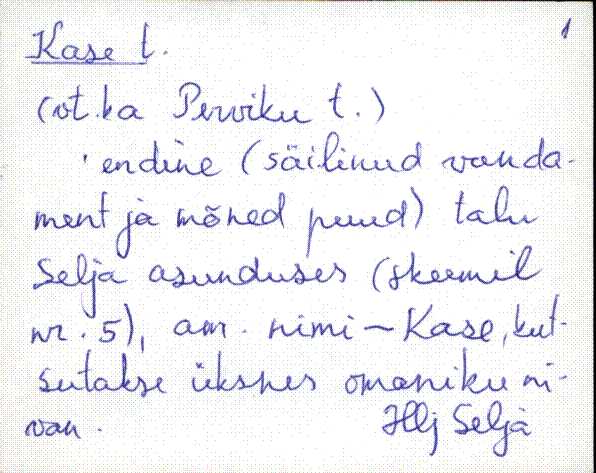 1
Kase t.
(vt. ka Perviku t.)
'endine (säilinud vanda-
ment ja mõned puud) talu
Selja asunduses (skeemil
nr. 5), am. nimi – Kase, kut-
sutakse üksnes omaniku ni-
van.
Hlj Selja